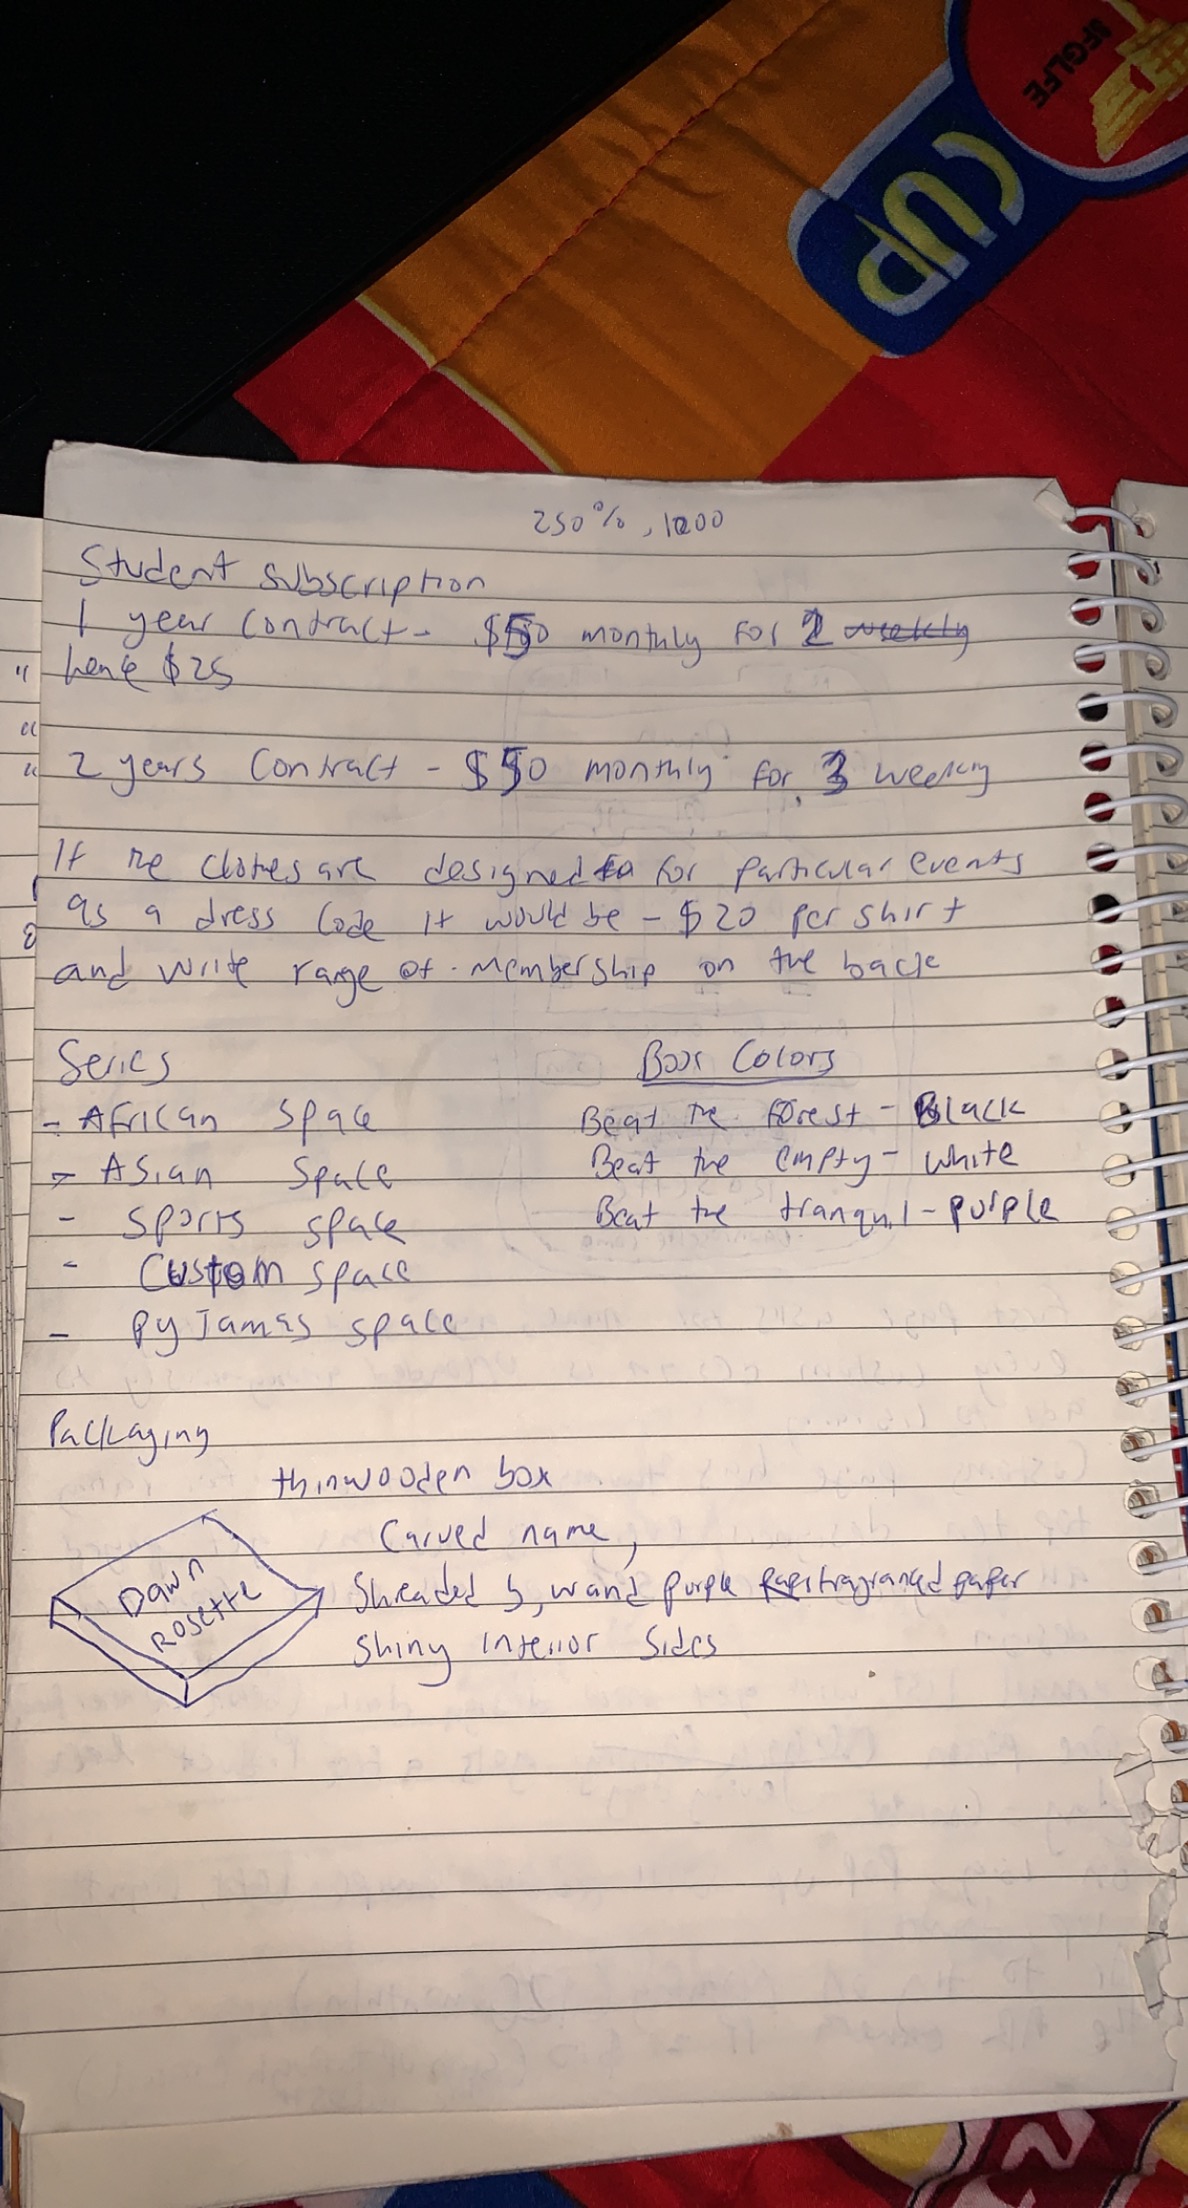 8FGLFE
CUP
250%, 1000
Student subscription
1 year contract - $50 monthly for 2 weekly
hence $25
2 years contract - $50 monthly for 3 weekly
If the clothes are designed for particular events
as a dress code it would be - $20 per shirt
and write range of membership on the back
Series
- African space
- Asian space
- sports space
- Custom space
- pyjamas space
Box Colors
Beat the forest - Black
Beat the empty - white
Beat the tranquil - purple
Packaging
thin wooden box
Carved name,
Shreaded purple paper
Shiny interior sides
Dawn
Rosette